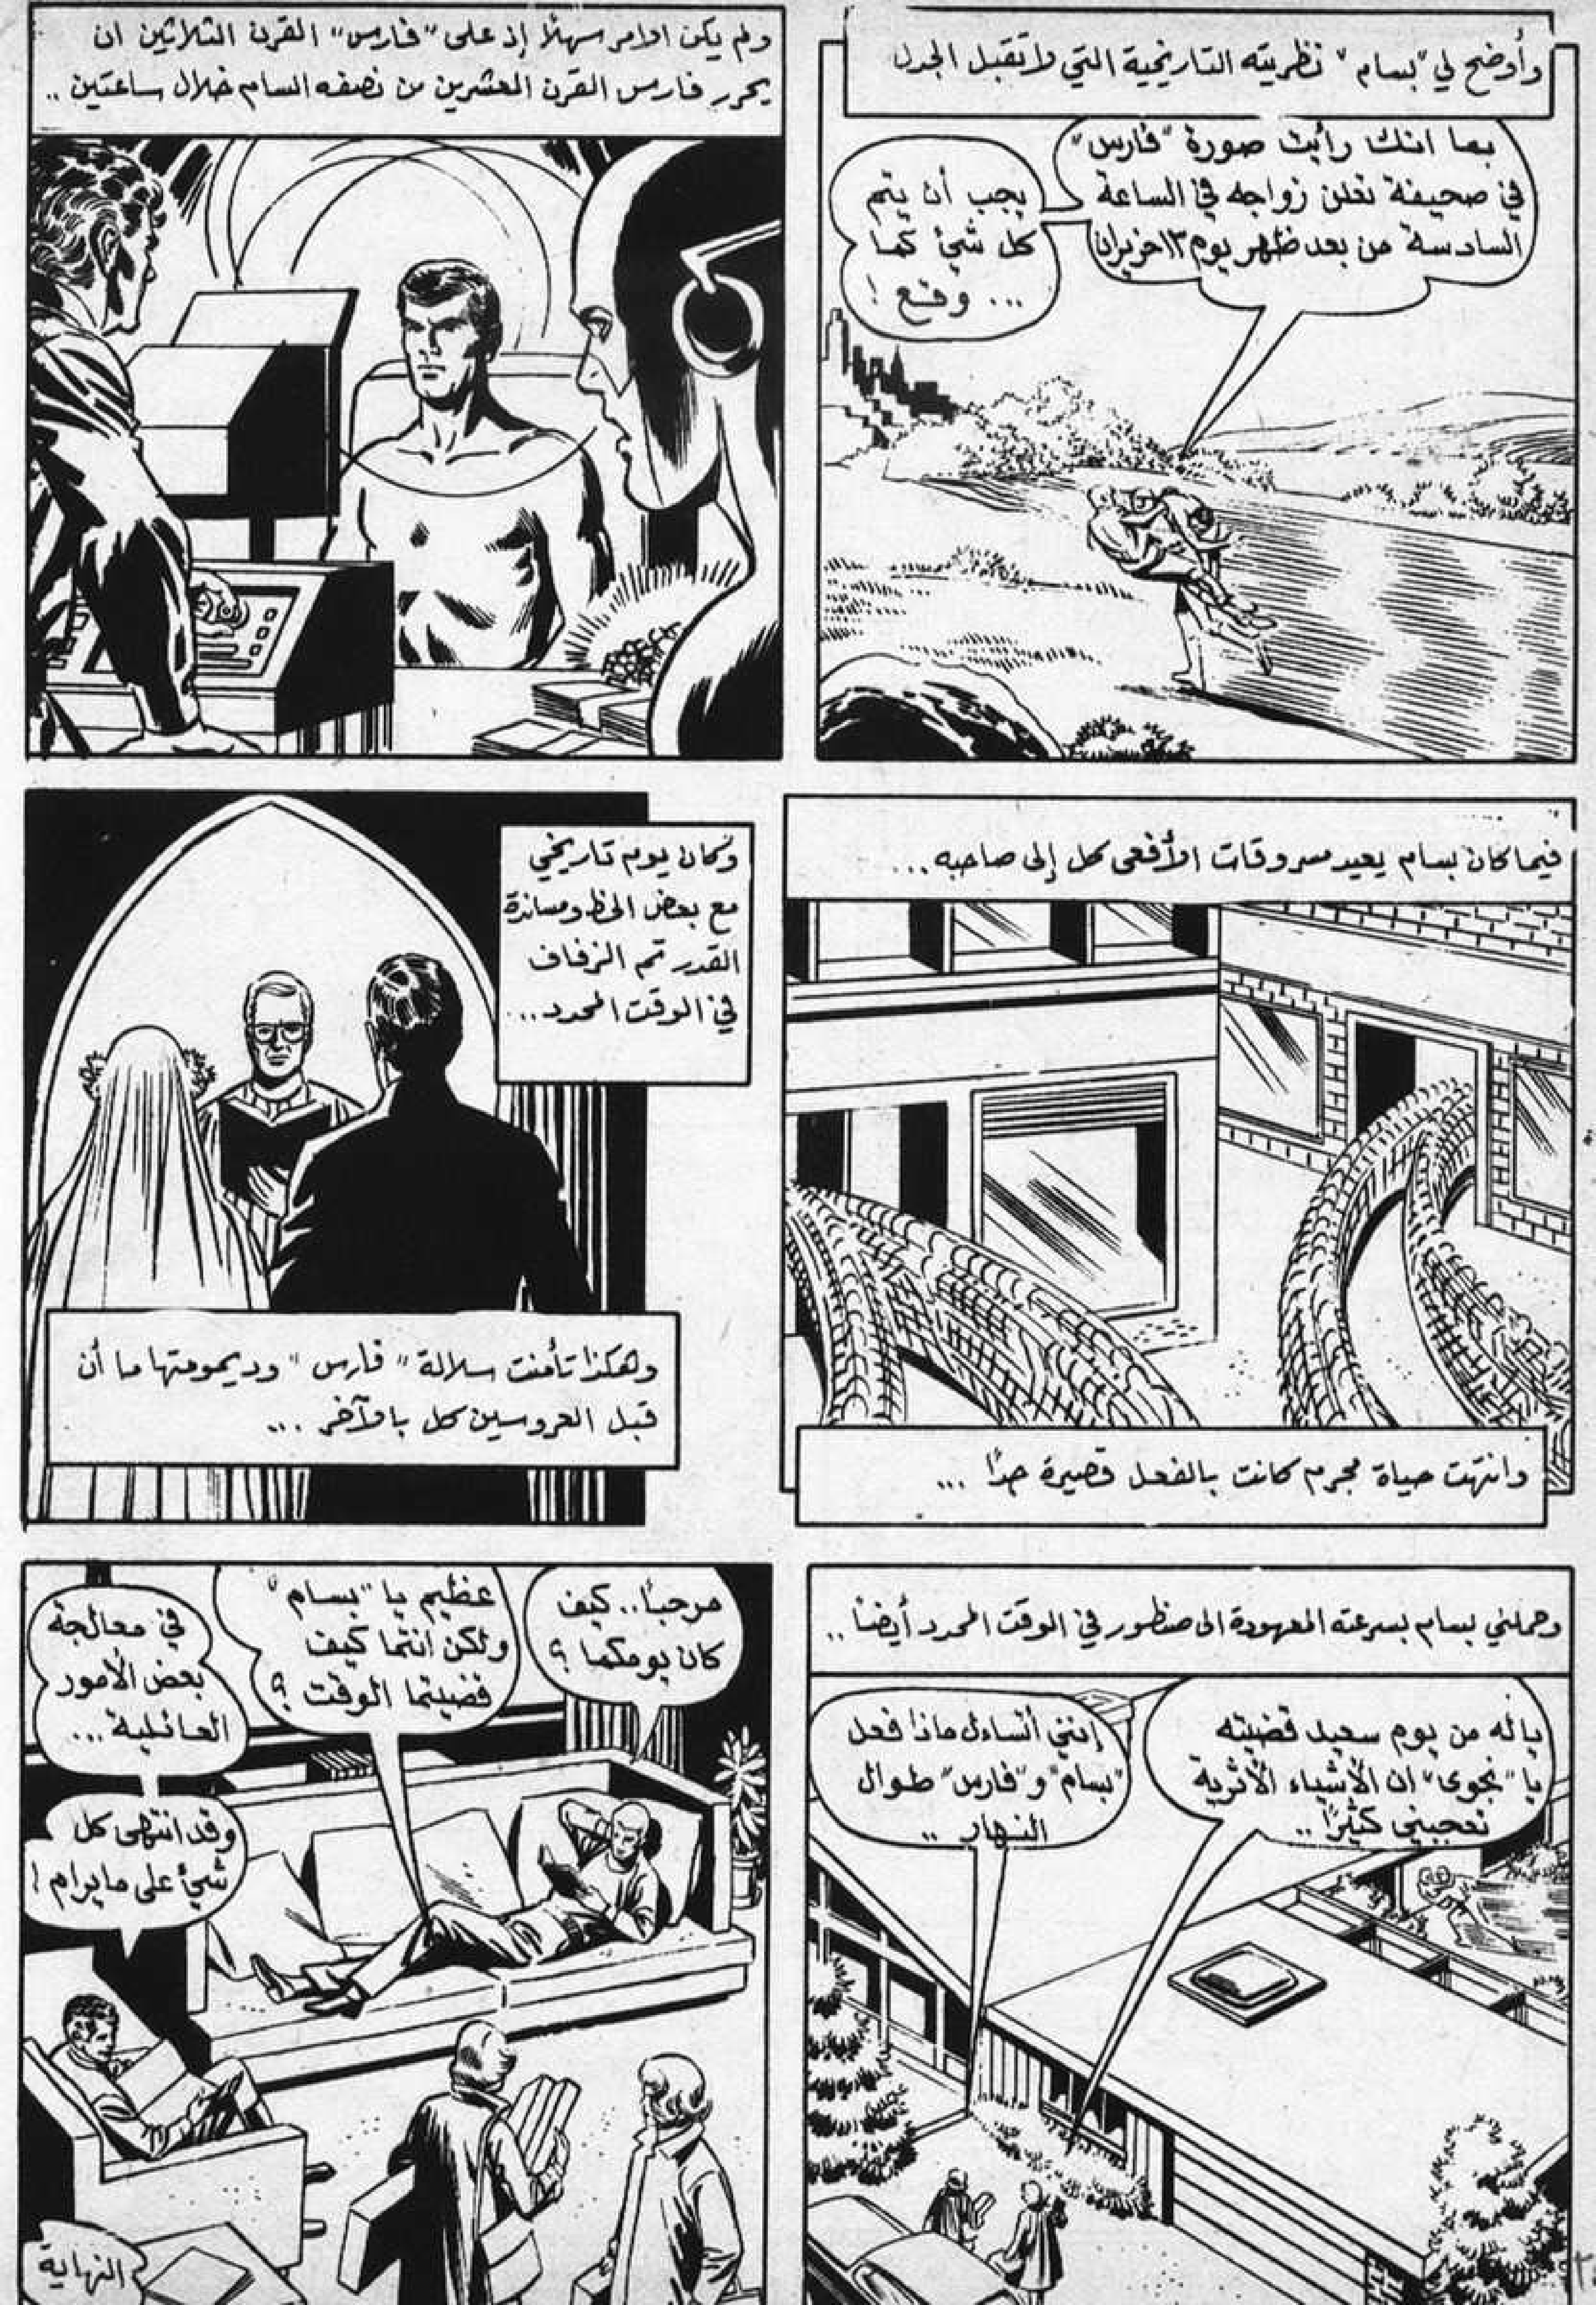 وأوضح لي "بسام" نظريته التاريخية التي لا تقبل الجدل
بما انك رأيت صورة "فارس"
في صحيفة تعلن زواجه في الساعة
السادسة من بعد ظهر يوم ١٣ حزيران
يجب أن يتم
كل شيئ كما
وقع ! ...
ولم يكن الامر سهلاً إذ على "فارس" القرن الثلاثين ان
يحرر فارس القرن العشرين من نصفه السام خلال ساعتين ..
فيما كان بسام يعيد مسروقات الأفعى كل إلى صاحبه ...
وانتهت حياة مجرم كانت بالفعل قصيرة جدًا ...
وكان يوم تاريخي
مع بعض الحظ ومساندة
القدر تم الزفاف
في الوقت المحدد ...
وهكذا تأمنت سلالة "فارس" وديمومتها ما أن
قبل العروسين كل بالآخر ...
وحملني بسام بسرعته المعهودة الى صنظور في الوقت المحدد أيضاً ..
ياله من يوم سعيد قضيته
يا "نجوى" ان الأشياء الأثرية
تعجبني كثيرًا ..
إنني أتساءل ماذا فعل
"بسام" و"فارس" طوال
النهار ..
مرحباً .. كيف
كان يومكما ؟
عظيم يا "بسام"
ولكن انتما كيف
قضيتما الوقت ؟
في معالجة
بعض الأمور
العائلية ...
وقد انتهى كل
شيئ على ما يرام !
النهاية